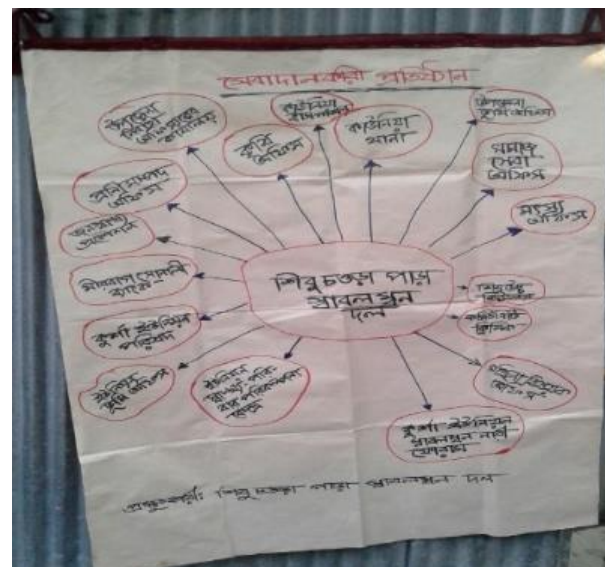 সেবাদানকারী প্রতিষ্ঠান
উপজেলা
কার্যালয়
কৃষি
অফিস
কাউনিয়া
কাউনিয়া
থানা
উপজেলা
ভূমি অফিস
সমাজ
সেবা
অফিস
মৎস্য
অফিস
প্রাণী সম্পদ
অফিস
জনস্বাস্থ্য
মীরবাগ সোনালী
ব্যাংক
কুর্শা ইউনিয়ন
পরিষদ
ইউনিয়ন
ভূমি অফিস
ইউনিয়ন
স্বাস্থ্য পরি-
বার পরিকল্পনা
কেন্দ্র
শিবু চওড়া পাড়া
স্বাবলম্বন
দল
ক্লিনিক
অফিস
কুর্শা ইউনিয়ন
স্বাবলম্বন নারী
ফোরাম
প্রস্তুতকারী: শিবু চওড়া পাড়া স্বাবলম্বন দল